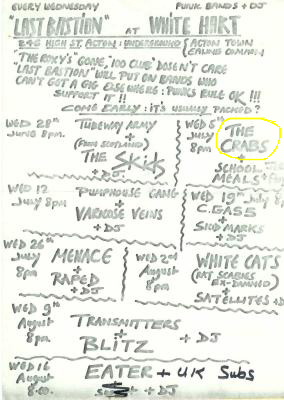 EVERY WEDNESDAY PUNK BANDS + DJ
"LAST BASTION" AT WHITE HART
246 HIGH ST. ACTON: UNDERGROUND (ACTON TOWN
EALING COMMON
"THE ROXY'S" GONE, '100 CLUB' DOSEN'T CARE
"LAST BASTION" WILL PUT ON BANDS WHO
CAN'T GET A GIG ELSEWHERE: PUNKS RULE OK !!!
SUPPORT IT !!
COME EARLY: IT'S USUALLY PACKED?
WED 28TH
JUNE 8pm.
TUBEWAY ARMY
+
(FROM SCOTLAND)
THE SKIDS
WED 5TH
July
8pm
THE
CRABS
+
SCHOOL
MEALS +
WED 12
July
8pm
PUMPHOUSE GANG
+
VARICOSE VEINS
+ DJ
WED 19TH July 8p
C.GAS5
+
SKID MARKS
+ DJ
WED 26TH
July
8pm
MENACE
+
RAPED
+ DJ
WED 2nd
August
8pm
WHITE CATS
(RAT SCABIES
EX-DAMNED)
+
SATELLITES + D
WED 9TH
August
8pm
TRANSMITTERS
+
BLITZ
+ DJ
WED 16
August
8.00.
EATER + UK Subs
+ DJ